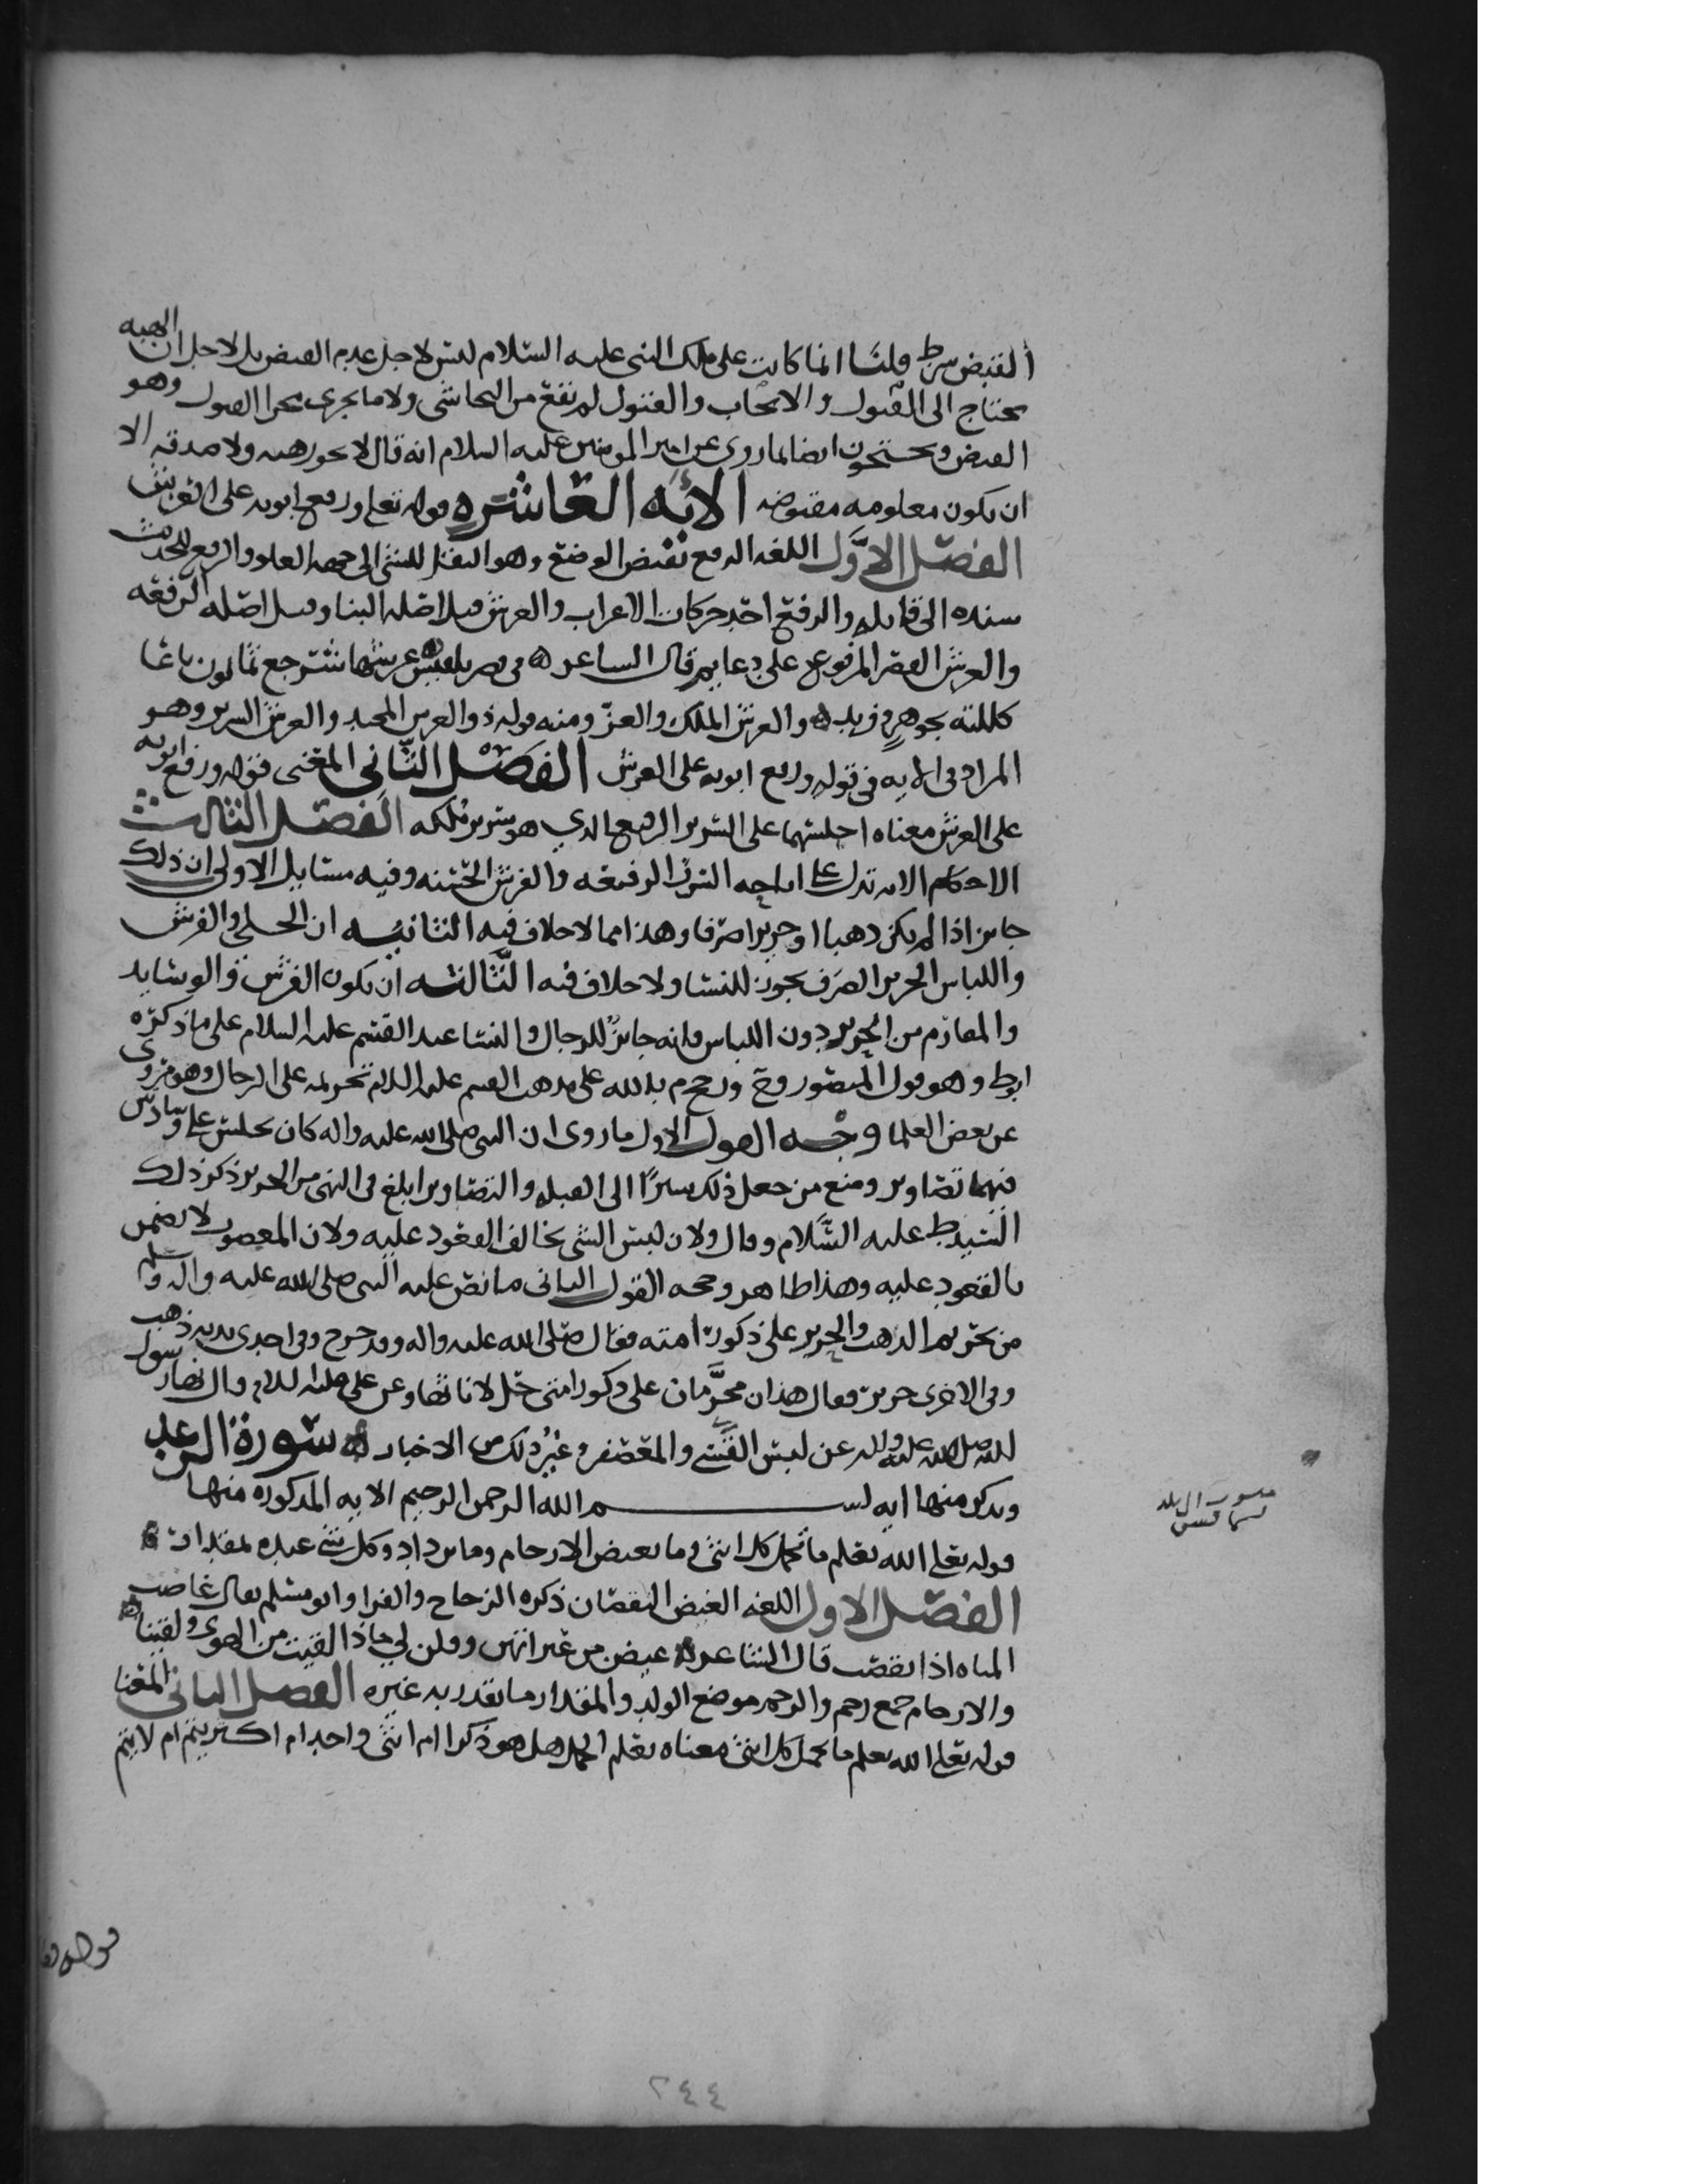 القبض شرط قلنا انما كانت على ملك النبي عليه السلام ليس لاجل عدم القبض بل لاجل ان الهبه
تحتاج الى القبول والايجاب والقبول لم يقع من النجاشي ولا ما يجرى مجرا القبول وهو
القبض ويحتجون ايضا لما روى عن امير المومنين عليه السلام انه قال لا تجوز هبه ولا صدقه الا
ان يكون معلومه مقبوضه الايه العاشره قوله تعلى ورفع ابويه على العرش
الفصل الاول اللغه الرفع نقيض الوضع وهو النقل للشي الى جهه العلو والرفع للحديث
سنده الى قايله والرفع احد حركات الاعراب والعرش قيل اصله البنا وقيل اصله الرفعه
والعرش القصر المرفوع على دعايم قال الشاعر ه في قصر بلقيس عرشها شرجع ثمانون باعا
كللته بجوهر وفريد ه والعرش الملك والعز ومنه قوله ذو العرش المجيد والعرش السرير وهو
المراد في الايه في قوله ورفع ابويه على العرش الفصل الثاني المعنى قوله ورفع ابويه
على العرش معناه اجلسهما على السرير الرفيع الذي هو سرير ملكه الفصل الثالث
الاحكام الايه تدل على اباحه السرر الرفيعه والفرش الحسنه وفيه مسايل الاولى ان ذلك
جايز اذا لم يكن ذهبا او حريرا صرفا وهذا مما لا خلاف فيه الثانيه ان الحلي والفرش
واللباس الحرير الصرف يجوز للنسا ولا خلاف فيه الثالثه ان يكون الفرش والوسايد
والمقارم من الحرير دون اللباس فانه جايز للرجال والنسا عند القسم عليه السلام على ما ذكره
ابوط وهو قول المنصور وح ورجح م بالله على مذهب القسم عليه السلام تحريمه على الرجال وهو مروى
عن بعض العلما وجه القول الاول ما روى ان النبي صلى الله عليه واله كان يجلس على وسادتين
فيهما تصاوير ومنع من جعل ذلك سترا الى القبله والتصاوير ابلغ في النهى من الحرير ذكر ذلك
السيد ط عليه السلام وقال ولان لبس الشي يخالف القعود عليه ولان المغصوب لا يضمن
بالقعود عليه وهذا ظاهر وحجه القول الثاني ما نص عليه النبي صلى الله عليه واله وسلم
من تحريم الذهب والحرير على ذكور امته فقال صلى الله عليه واله وقد خرج وفي احدى يديه ذهب
وفي الاخرى حرير فقال هذان محرمان على ذكور امتي حل لاناثها وعن علي عليه السلام قال نهاني رسول
الله صلى الله عليه واله عن لبس القسي والمعصفر وغير ذلك من الاخبار ه سورة الرعد
ونذكر منها ايه بسم الله الرحمن الرحيم الايه المذكوره منها
قوله تعلى الله يعلم ما تحمل كل انثى وما تغيض الارحام وما تزداد وكل شي عنده بمقدار ه
الفصل الاول اللغه الغيض النقصان ذكره الزجاج والفرا وابو مسلم يقال غاضت
المياه اذا نقصت قال الشاعر ه غيضن من عبراتهن وقلن لي ماذا لقيت من الهوى ولقينا ه
والارحام جمع رحم والرحم موضع الولد والمقدار ما يقدر به غيره الفصل الثاني المعنا
قوله تعلى الله يعلم ما تحمل كل انثى معناه يعلم الحمل هل هو ذكر ام انثى واحد ام اكثر يتم ام لا يتم
٢٤٤